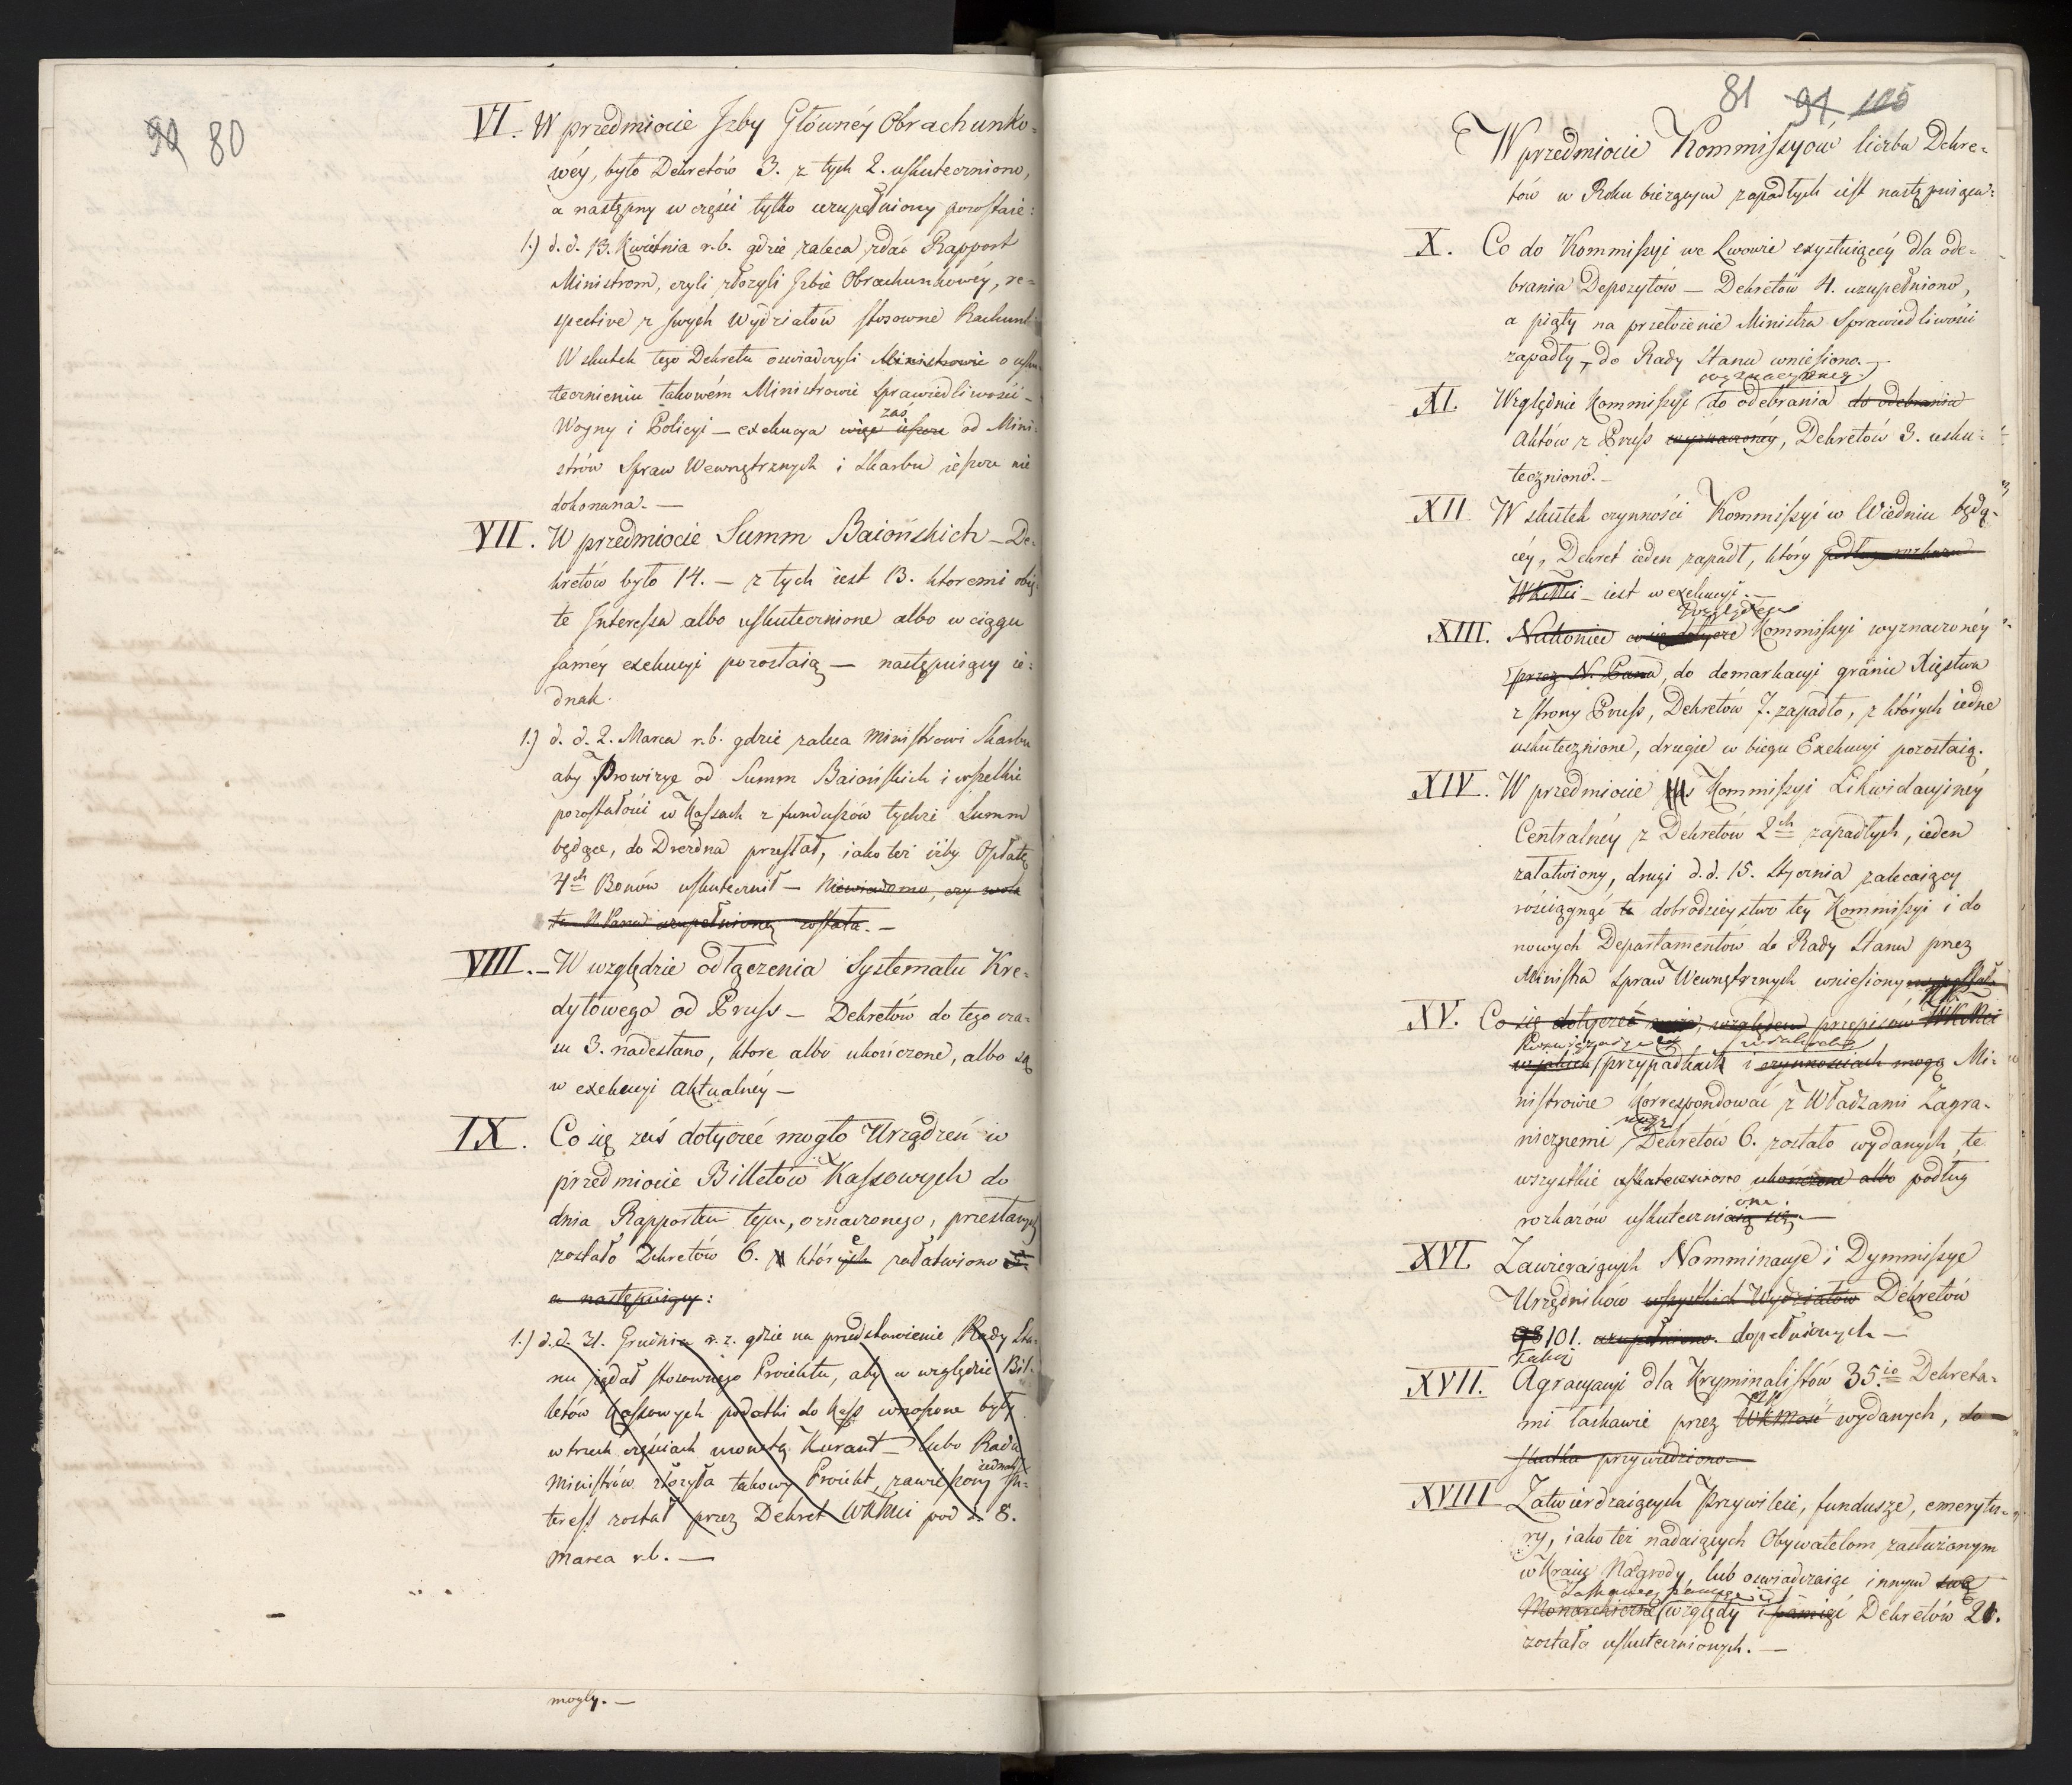 90 80
VI. W przedmiocie Jzby Główney Obrachunko=
wéy, było Dekretów 3. z tych 2. uskuteczniono,
a następny w części tylko uzupełniony pozostaie:
1.) d. d. 13. Kwietnia r. b. gdzie zaleca zdać Rapport
Ministrom, czyli złożyli Jzbie Obrachunkowéy, re=
spective z swych Wydziałów stosowne Rachunki
W skutek tego Dekretu oświadczyli Ministrowie o usku=
tecznieniu takowém Ministrowie Sprawiedliwości –
zaś
Woyny i Policyi – exekucya więc ieszcze od Mini=
strów Spraw Wewnętrznych i Skarbu ieszcze nie
dokonana. —
VII. W przedmiocie Summ Baiońskich – De=
kretów było 14. – z tych iest 13. ktoremi obię
te Jnteressa albo uskutecznione albo w ciągu
saméy exekucyi pozostaią — następuiący ie=
dnak.
1.) d. d. 2. Marca r. b. gdzie zaleca Ministrowi Skarbu
aby Prowizye od Summ Baiońskich i wszelkie
pozostałości w Kassach z funduszów tychże Summ
będące, do Drezdna przesłał, iako też iżby Opłatę
4ch Bonów uskutecznił – Niewiadomo, czy wola
ta N. Pana uzupełnioną została. –
VIII. – W względzie odłączenia Systematu Kre=
dytowego od Pruss – Dekretów do tego cza=
su 3. nadesłano, ktore albo ukończone, albo są
w exekucyi aktualnéy —
IX. Co się zaś dotyczeć mogło Urządzeń w
przedmiocie Billetów Kassowych do
dnia Rapportem tym, oznaczonego, przesłanych
zostało Dekretów 6. z których załatwiono 5.
a następuiący:
1.) d. d. 31. Grudnia r. z. gdzie na przedstawienie Rady Sta=
nu żądał stosownego Proiektu, aby w względzie Bil=
letów Kassowych podatki do Kass wnoszone były
w trzech częściach monetą Kurant – lubo Rada
iednak
Ministrów złożyła takowy Proiekt, zawieszony Jn=
teress został przez Dekret WKMci pod d. 8.
Marca r. b. —
mogły. —
81 91 105
W przedmiocie Kommissyów liczba Dekre=
tów w Roku bieżącym zapadłych iest następuiąca:
X. Co do Kommissyi we Lwowie exystuiącéy dla ode=
brania Depozytów – Dekretów 4. uzupełniono,
a piąty na przełożenie Ministra Sprawiedliwości
zapadły, do Rady Stanu wniesiono. –
wyznaczoney
XI. Względnie Kommissyi do odebrania do odebrania
Aktów z Pruss wyznaczonéy, Dekretów 3. usku=
teczniono. –
XII W skutek czynności Kommissyi w Wiedniu będą=
céy, Dekret ieden zapadł, który podług rozkazu
WKMci – iest w exekucyi. –
względem
XIII. Nakoniec co się dotycze Kommissyi wyznaczonéy
przez N. Pana, do demarkacyi granic Xięstwa
z strony Pruss, Dekretów 7. zapadło, z których iedne
uskutecznione, drugie w biegu Exekucyi pozostaią.
XIV. W przedmiocie Kommissyi Likwidacyinéy
Centralnéy z Dekretów 2ch zapadłych, ieden
załatwiony, drugi d. d. 15. Stycznia zalecaiący
rościągnąć te dobrodzieystwo tey Kommissyi i do
nowych Departamentów do Rady Stanu przez
Ministra Spraw Wewnętrznych wniesiony
XV. Co się dotyczeć względem przepisów WKMci
w jakich przypadkach i czynnościach mogą Mi=
nistrowie korrespondować z Władzami Zagra=
mogą
nicznemi, Dekretów 6. zostało wydanych, te
wszystkie uskuteczniono ukończone albo podług
rozkazów uskuteczniaią się. —
XVI. Zawieraiących Nomminacye i Dymmissye
Urzędników wszystkich Wydziałów Dekretów
98 101. uzupełniono. dopełnionych —
XVII. Agracyacyi dla Kryminalistów 35.io Dekreta=
mi łaskawie przez WKMość wydanych, do
skutku przywiedziono
XVIII Zatwierdzaiących Przywileie, fundusze, emerytu=
ry, iako też nadaiących Obywatelom zasłużonym
w Kraiu Nagrody lub oświadczaiąc innym swe
Monarchiczne względy i pamięć Dekretów 20.
zostało uskutecznionych. —